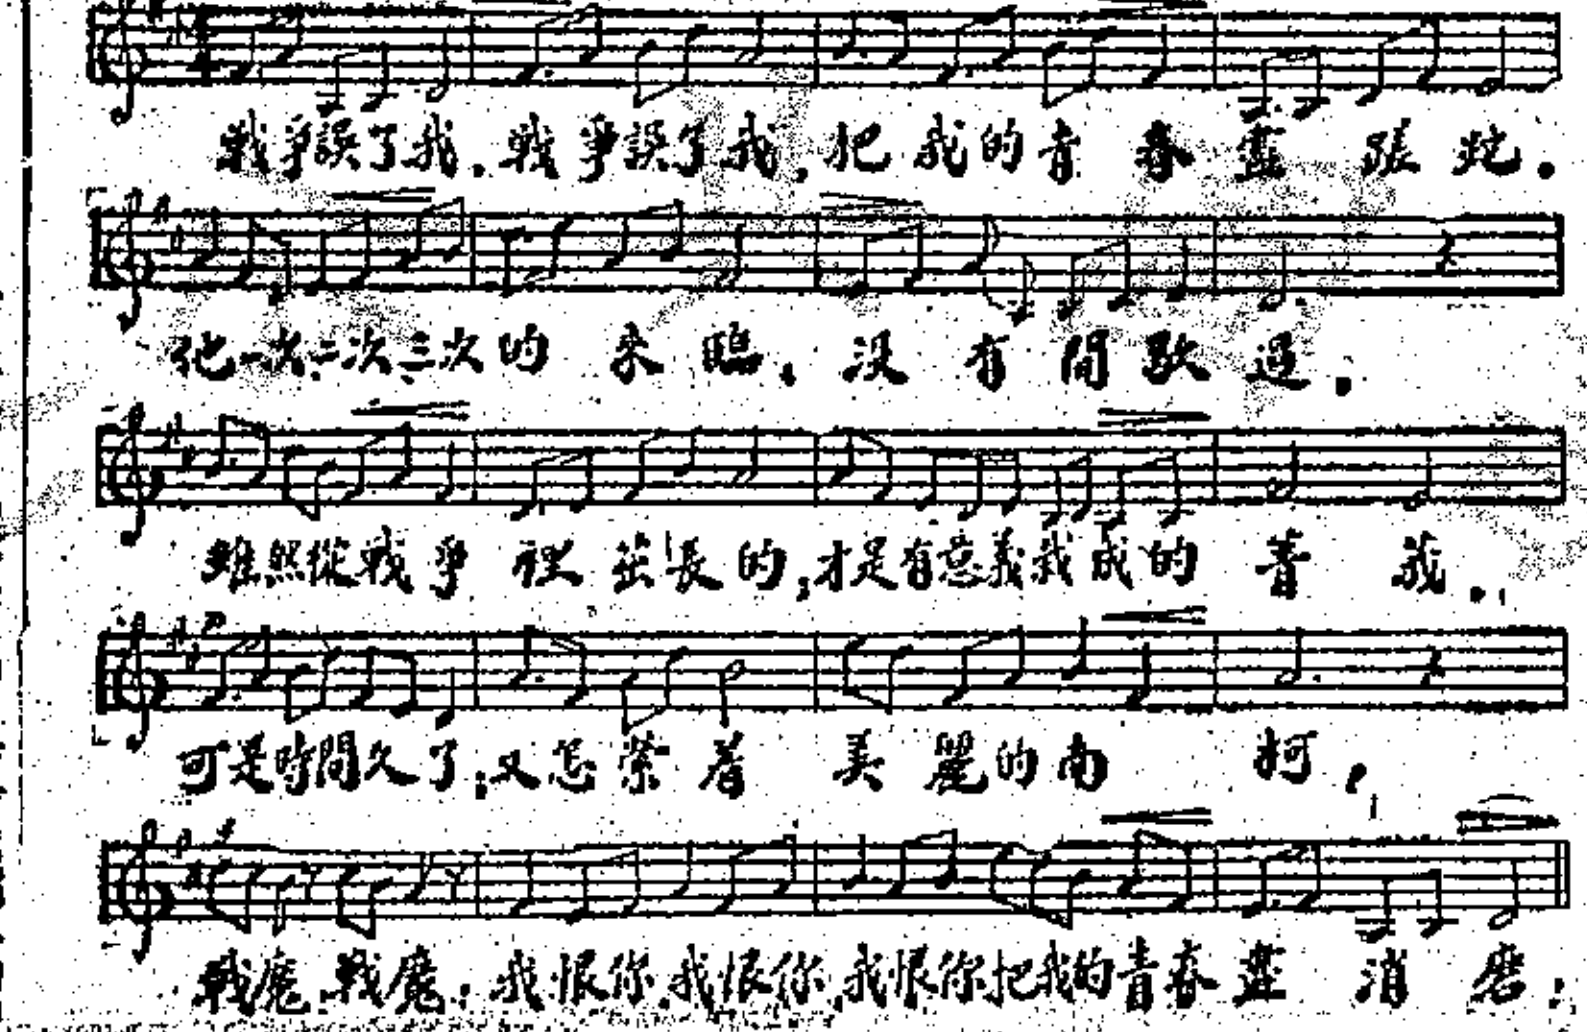 戰爭誤了我，戰爭誤了我，把我的青春盡蹉跎。
他一次、二次、三次的來臨，沒有間歇過。
雖然從戰爭裡茁長的，才是有意義我成的菁莪。
可是時間久了；又怎縈着美麗的南柯，
戰魔，戰魔，我恨你，我恨你，我恨你把我的青春盡消磨；